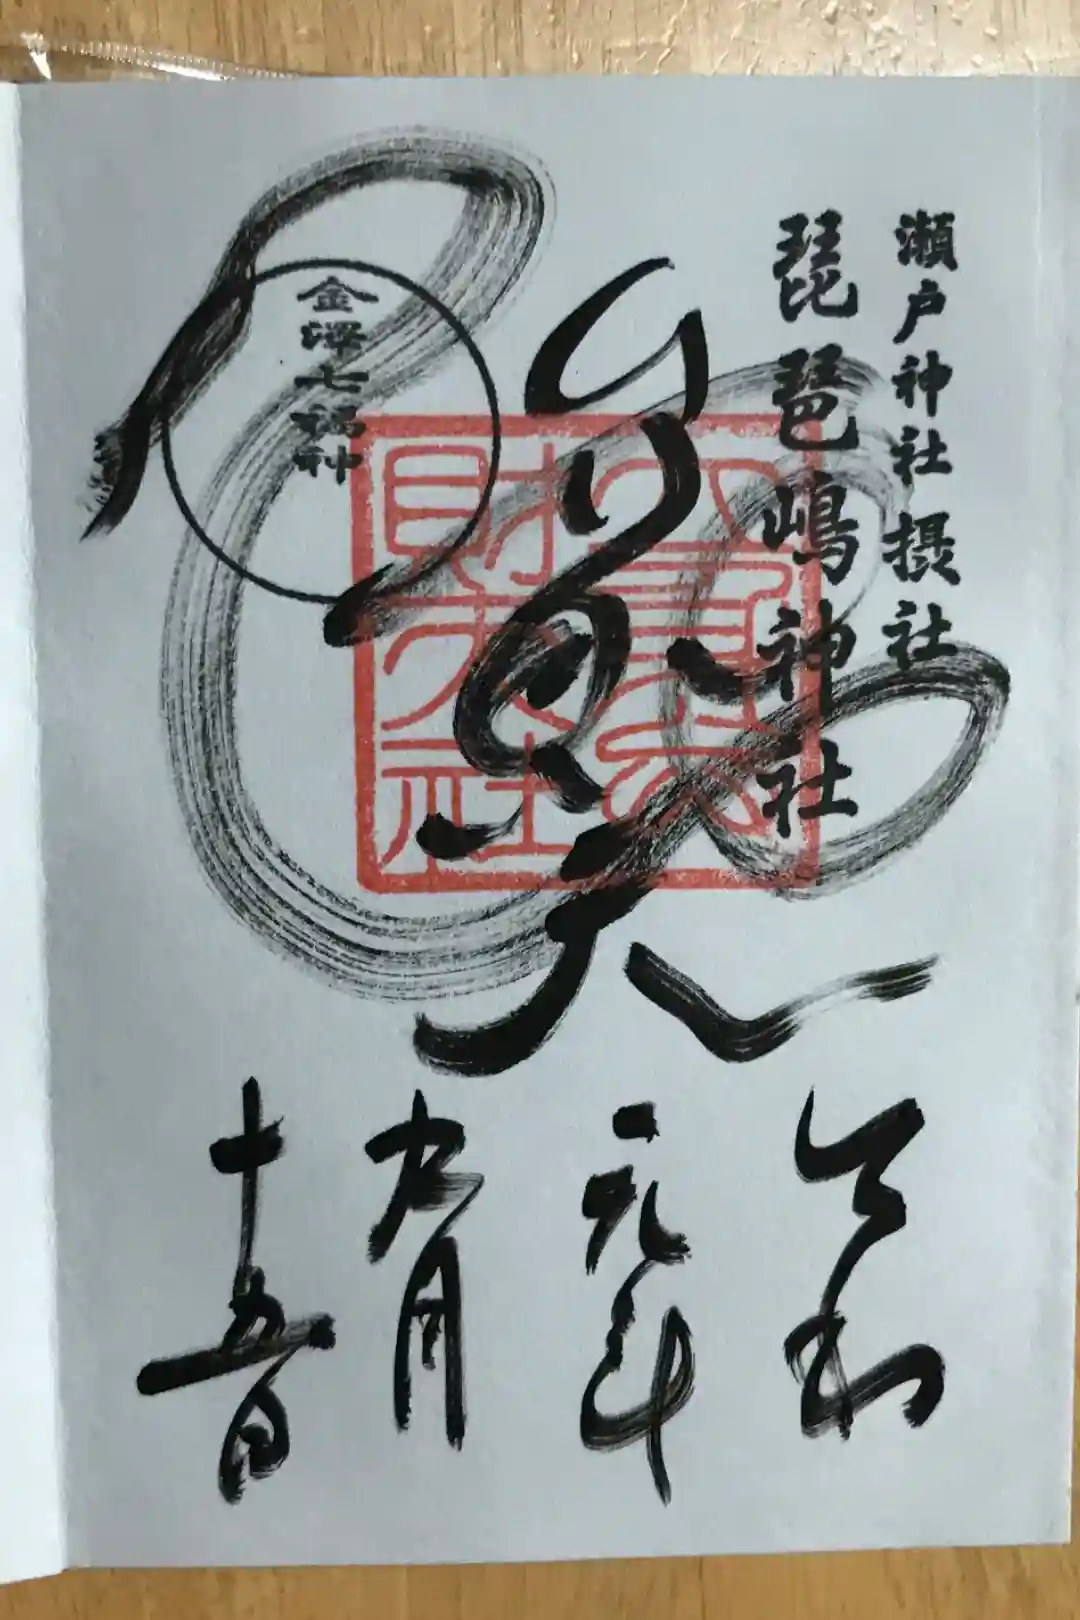 瀬戸神社摂社
琵琶嶋神社
立身弁
財天社
金澤七福神
令和
元年
九月
十五日